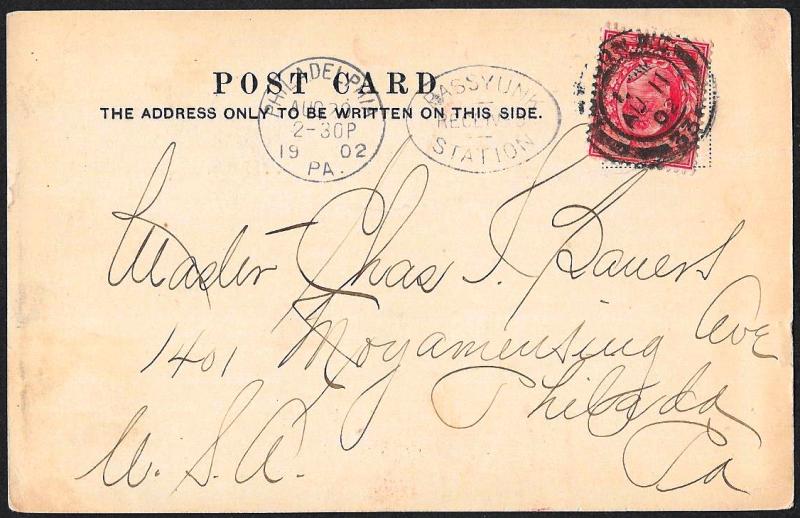 POST CARD
THE ADDRESS ONLY TO BE WRITTEN ON THIS SIDE.
PHILADELPHIA
AUG 20
2-30P
19 02
PA.
PASSYUNK
RECEIVED
STATION
Master Chas J. Bauers
1401 Moyamensing Ave
Philada
Pa
U.S.A.